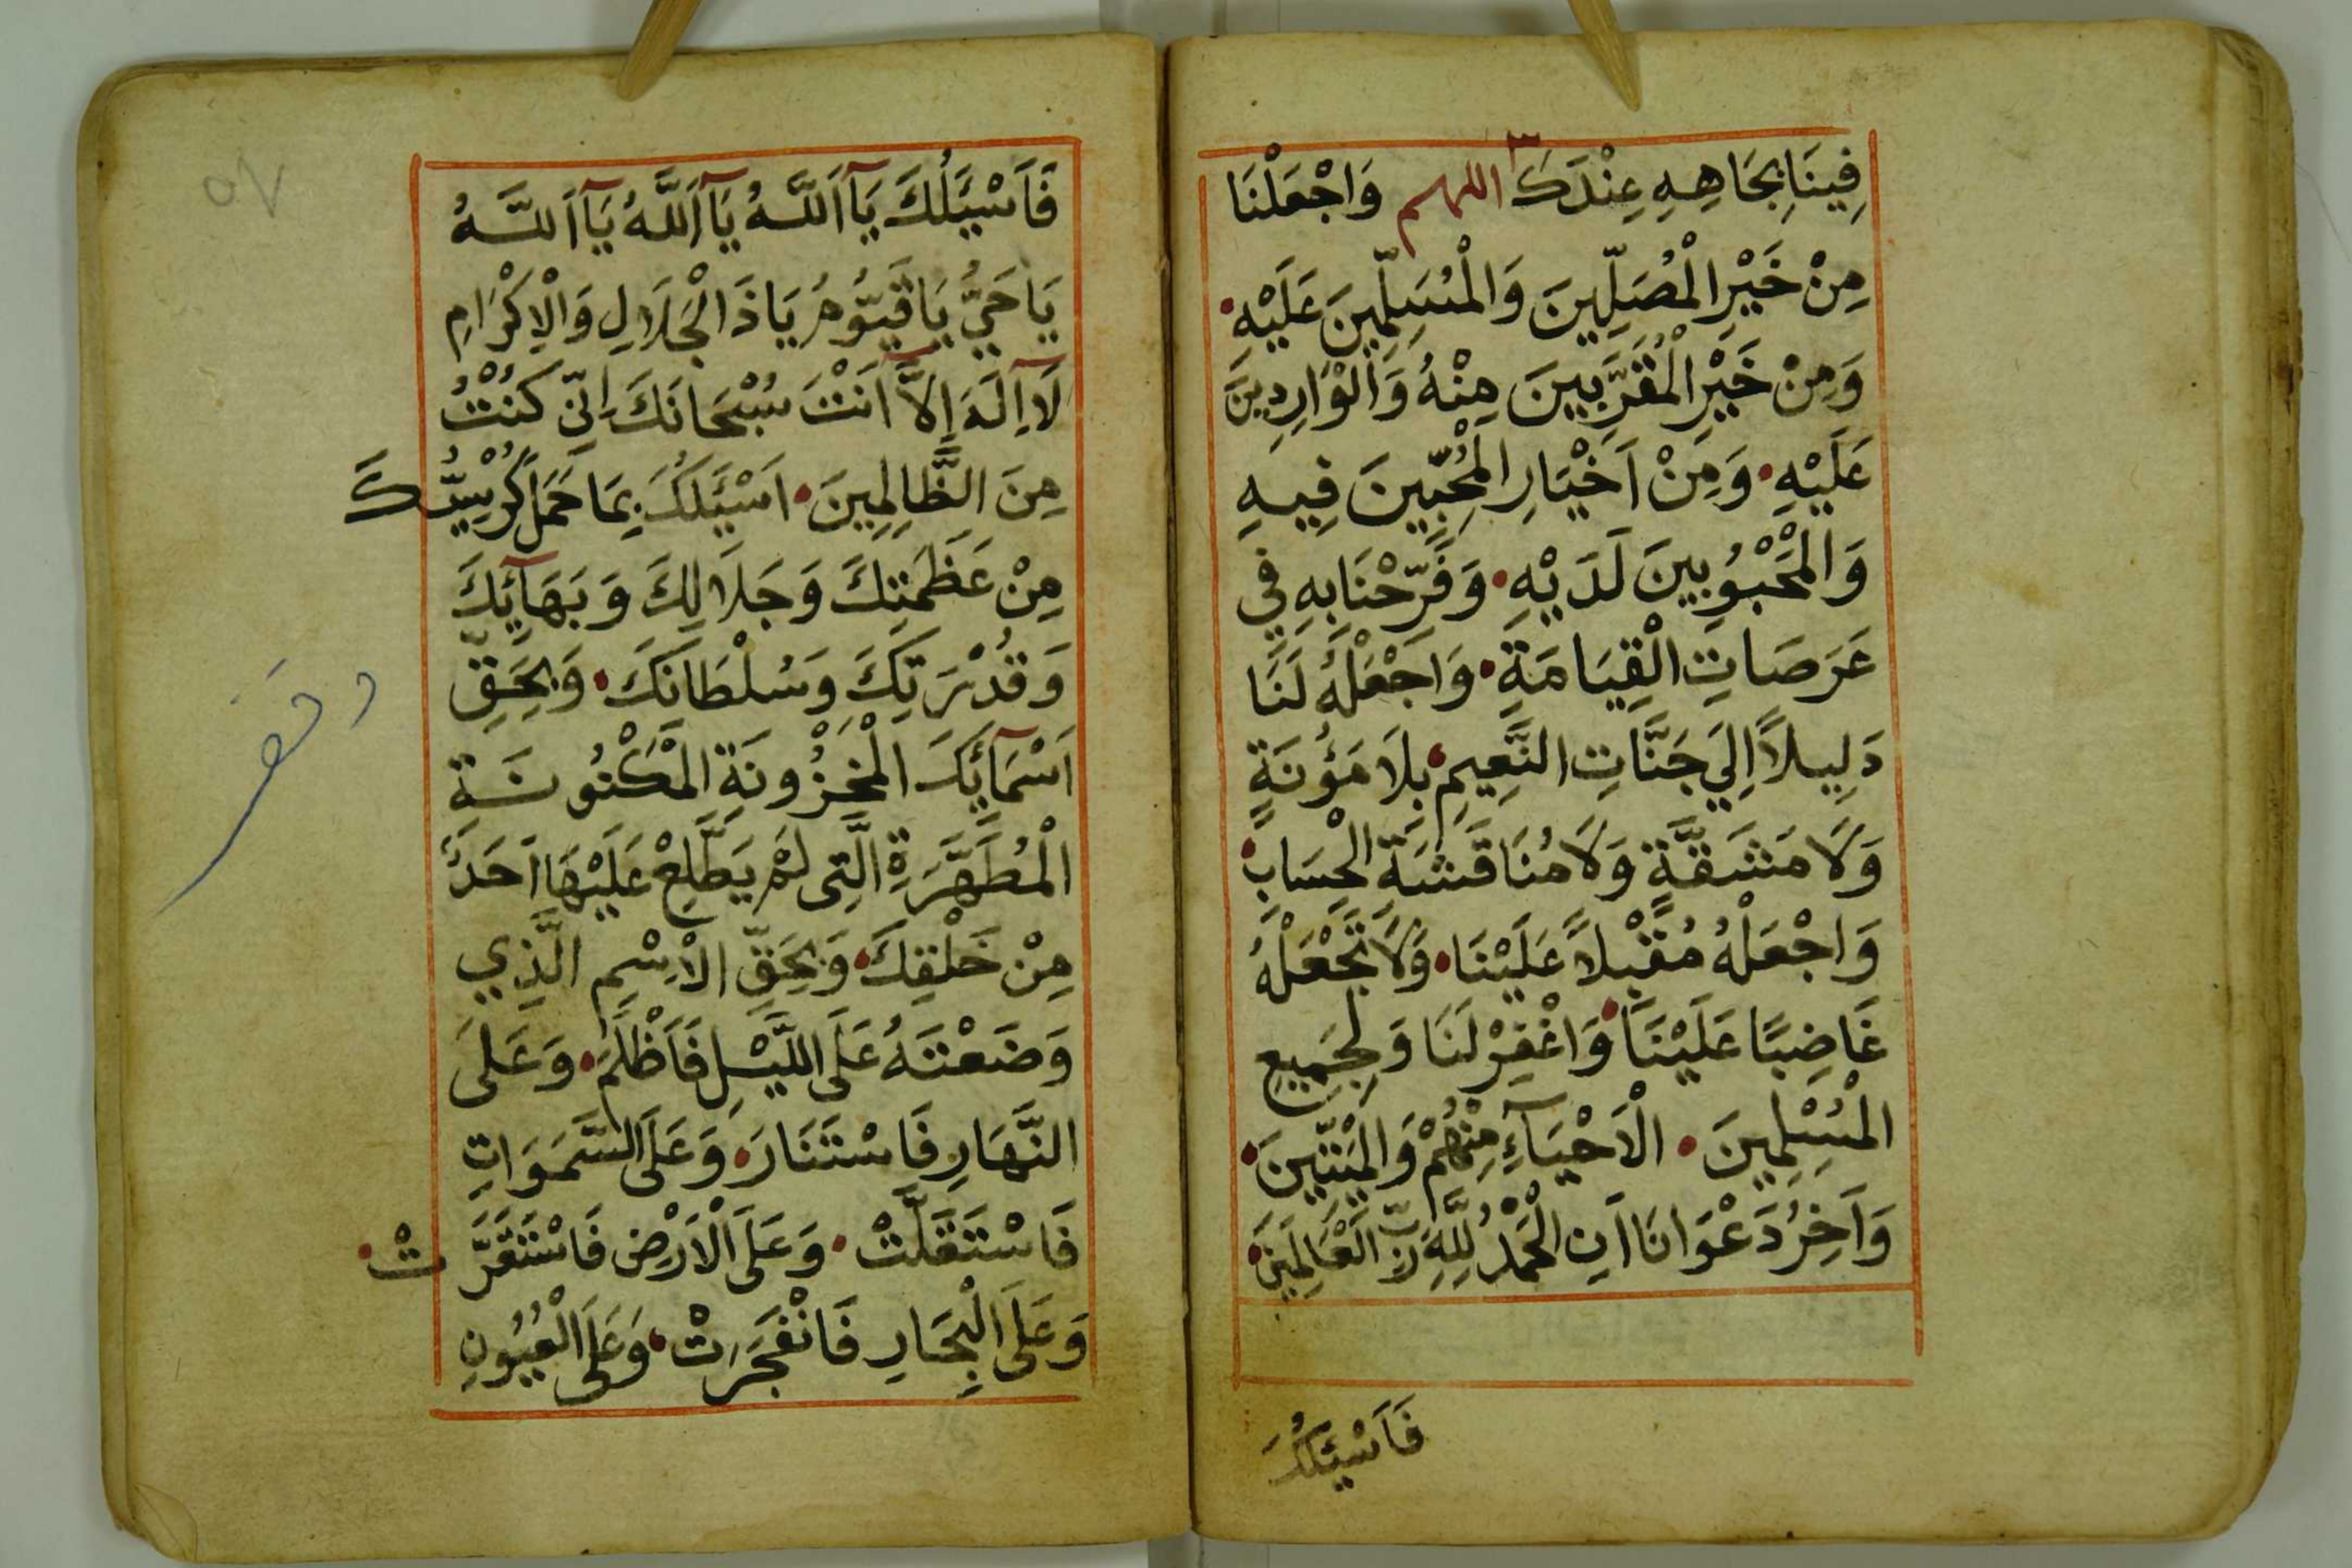 فِينَا بِجَاهِهِ عِنْدَكَ ٣ اللهم وَاجْعَلْنَا
مِنْ خَيْرِ الْمُصَلِّينَ وَالْمُسَلِّمِينَ عَلَيْهِ.
وَمِنْ خَيْرِ الْمُقَرَّبِينَ مِنْهُ وَالْوَارِدِينَ
عَلَيْهِ. وَمِنْ اَخْيَارِ الْمُحِبِّينَ فِيهِ
وَالْمَحْبُوبِينَ لَدَيْهِ. وَفَرِّحْنَا بِهِ فِي
عَرَصَاتِ الْقِيَامَةِ. وَاجْعَلْهُ لَنَا
دَلِيلاً اِلَي جَنَّاتِ النَّعِيمِ. بِلَا مَؤُنَةٍ
وَلَا مَشَقَّةٍ وَلَا مُنَاقَشَةِ الْحِسَابِ.
وَاجْعَلْهُ مُقْبِلاً عَلَيْنَا. وَلَا تَجْعَلْهُ
غَاضِبًا عَلَيْنَا. وَاغْفِرْ لَنَا وَلِجَمِيعِ
الْمُسْلِمِينَ. الْاَحْيَآءِ مِنْهُمْ وَالْمَيِّتِينَ.
وَآخِرُ دَعْوَانَا اَنِ الْحَمْدُ لِلَّهِ رَبِّ الْعَالَمِينَ.
فَاَسْئَلُكَ
٥٧
فَاَسْئَلُكَ يَآ اَللَّهُ يَآ اَللَّهُ يَآ اَللَّهُ
يَا حَيُّ يَا قَيُّومُ يَا ذَا الْجَلَالِ وَالْاِكْرَامِ
لَآ اِلَهَ اِلَّآ اَنْتَ سُبْحَانَكَ اِنِّي كُنْتُ
مِنَ الظَّالِمِينَ. اَسْئَلُكَ بِمَا حَمَلَ كُرْسِيُّكَ
مِنْ عَظَمَتِكَ وَجَلَالِكَ وَبَهَآئِكَ
وَقُدْرَتِكَ وَسُلْطَانِكَ. وَبِحَقِّ
اَسْمَآئِكَ الْمَخْزُونَةِ الْمَكْنُونَةِ
الْمُطَهَّرَةِ الَّتِي لَمْ يَطَّلِعْ عَلَيْهَا اَحَدٌ
مِنْ خَلْقِكَ. وَبِحَقِّ الْاِسْمِ الَّذِي
وَضَعْتَهُ عَلَى اللَّيْلِ فَاَظْلَمَ. وَعَلَى
النَّهَارِ فَاسْتَنَارَ. وَعَلَى السَّمَوَاتِ
فَاسْتَقَلَّتْ. وَعَلَى الْاَرْضِ فَاسْتَقَرَّتْ.
وَعَلَى الْبِحَارِ فَانْفَجَرَتْ. وَعَلَى الْعُيُونِ